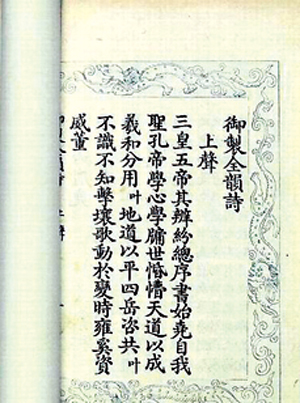 御製全韻詩
上聲
三皇五帝其辨紛總序書始堯自我
聖孔帝學心學牖世惛懵天道以成
羲和分用叶地道以平四岳咨共叶
不識不知擊壤歌動於變時雍奚資
威董